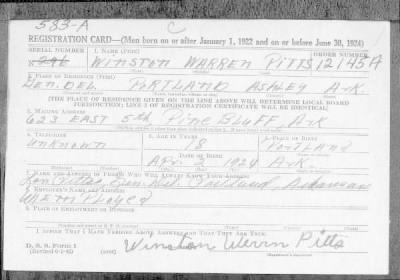 583-A
C
REGISTRATION CARD—(Men born on or after January 1, 1922 and on or before June 30, 1924)
SERIAL NUMBER 1. NAME (Print)
WINSTON WARREN PITTS 12145A
2. PLACE OF RESIDENCE (Print)
GEN. DEL. PORTLAND ASHLEY ARK
[THE PLACE OF RESIDENCE GIVEN ON THE LINE ABOVE WILL DETERMINE LOCAL BOARD
JURISDICTION; LINE 2 OF REGISTRATION CERTIFICATE WILL BE IDENTICAL]
3. MAILING ADDRESS
623 EAST 5th Pine Bluff, Ark
4. TELEPHONE 5. AGE IN YEARS 6. PLACE OF BIRTH
Unknown 18 PORTLAND
DATE OF BIRTH
Apr. 2 1924 Ark.
7. NAME AND ADDRESS OF PERSON WHO WILL ALWAYS KNOW YOUR ADDRESS
Gen. Del. Portland, Arkansas
8. EMPLOYER'S NAME AND ADDRESS
Unemployed
9. PLACE OF EMPLOYMENT OR BUSINESS
I AFFIRM THAT I HAVE VERIFIED ABOVE ANSWERS AND THAT THEY ARE TRUE.
D. S. S. Form 1
Winston Werrin Pitts